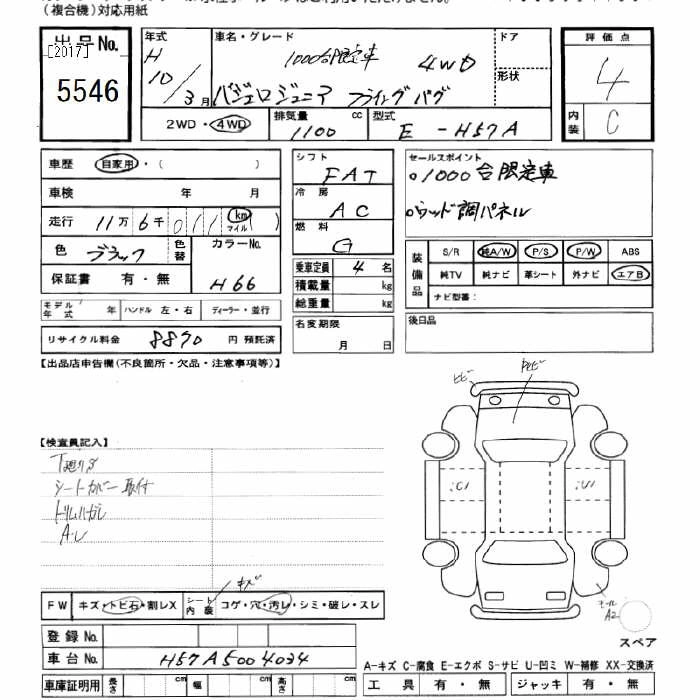 (複合機)対応用紙
出品No.
[2017]
5546
年式
H
10/3月
車名・グレード
1000台限定車 4WD
パジェロジュニア フライングパグ
ドア
形状
2WD・4WD
排気量 1100 cc
型式 E-H57A
評価点
4
内装
C
車歴 自家用・( )
車検 年 月
走行 11万6千011 km マイル
色 ブラック
色替
カラーNo.
H66
保証書 有・無
モデル年式 年 ハンドル 左・右 ディーラー・並行
リサイクル料金 8890 円 預託済
シフト
FAT
冷房
AC
燃料
G
乗車定員 4名
積載量 kg
総重量 kg
名変期限
月 日
セールスポイント
○1000台限定車
○ウッド調パネル
装備品
S/R 純A/W P/S P/W ABS
純TV 純ナビ 革シート 外ナビ エアB
ナビ型番:
後日品
【出品店申告欄(不良箇所・欠品・注意事項等)】
【検査員記入】
T廻りS
シートカバー取付
トリムハガレ
ヒビ
トビ
キズ
モール
A2
スペア
FW キズ・トビ石・割レX
シート内装 コゲ・穴・汚レ・シミ・破レ・スレ
登録No.
車台No. H57A5004034
車庫証明用 長さ cm 幅 cm 高さ cm
A-キズ C-腐食 E-エクボ S-サビ U-凹ミ W-補修 XX-交換済
工具 有・無 ジャッキ 有・無